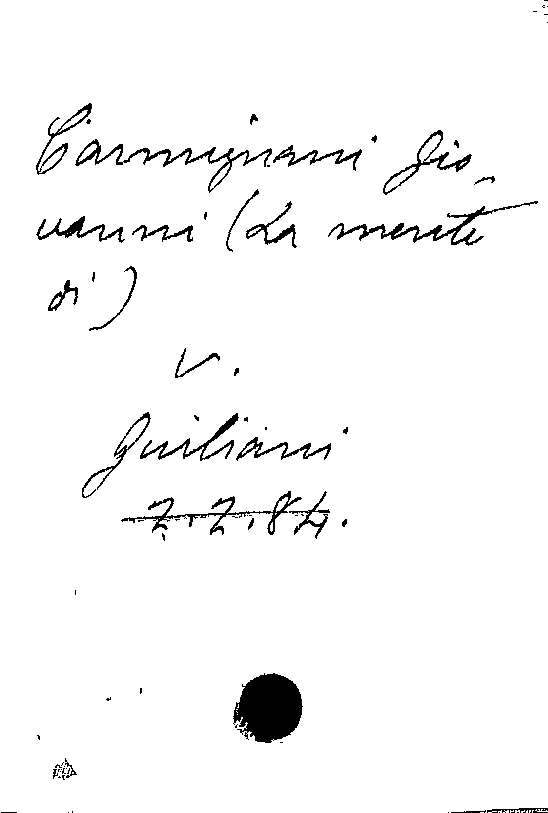 Carmignani Gio-
vanni (La mente
di)
v.
Giuliani
Z.Z.84.